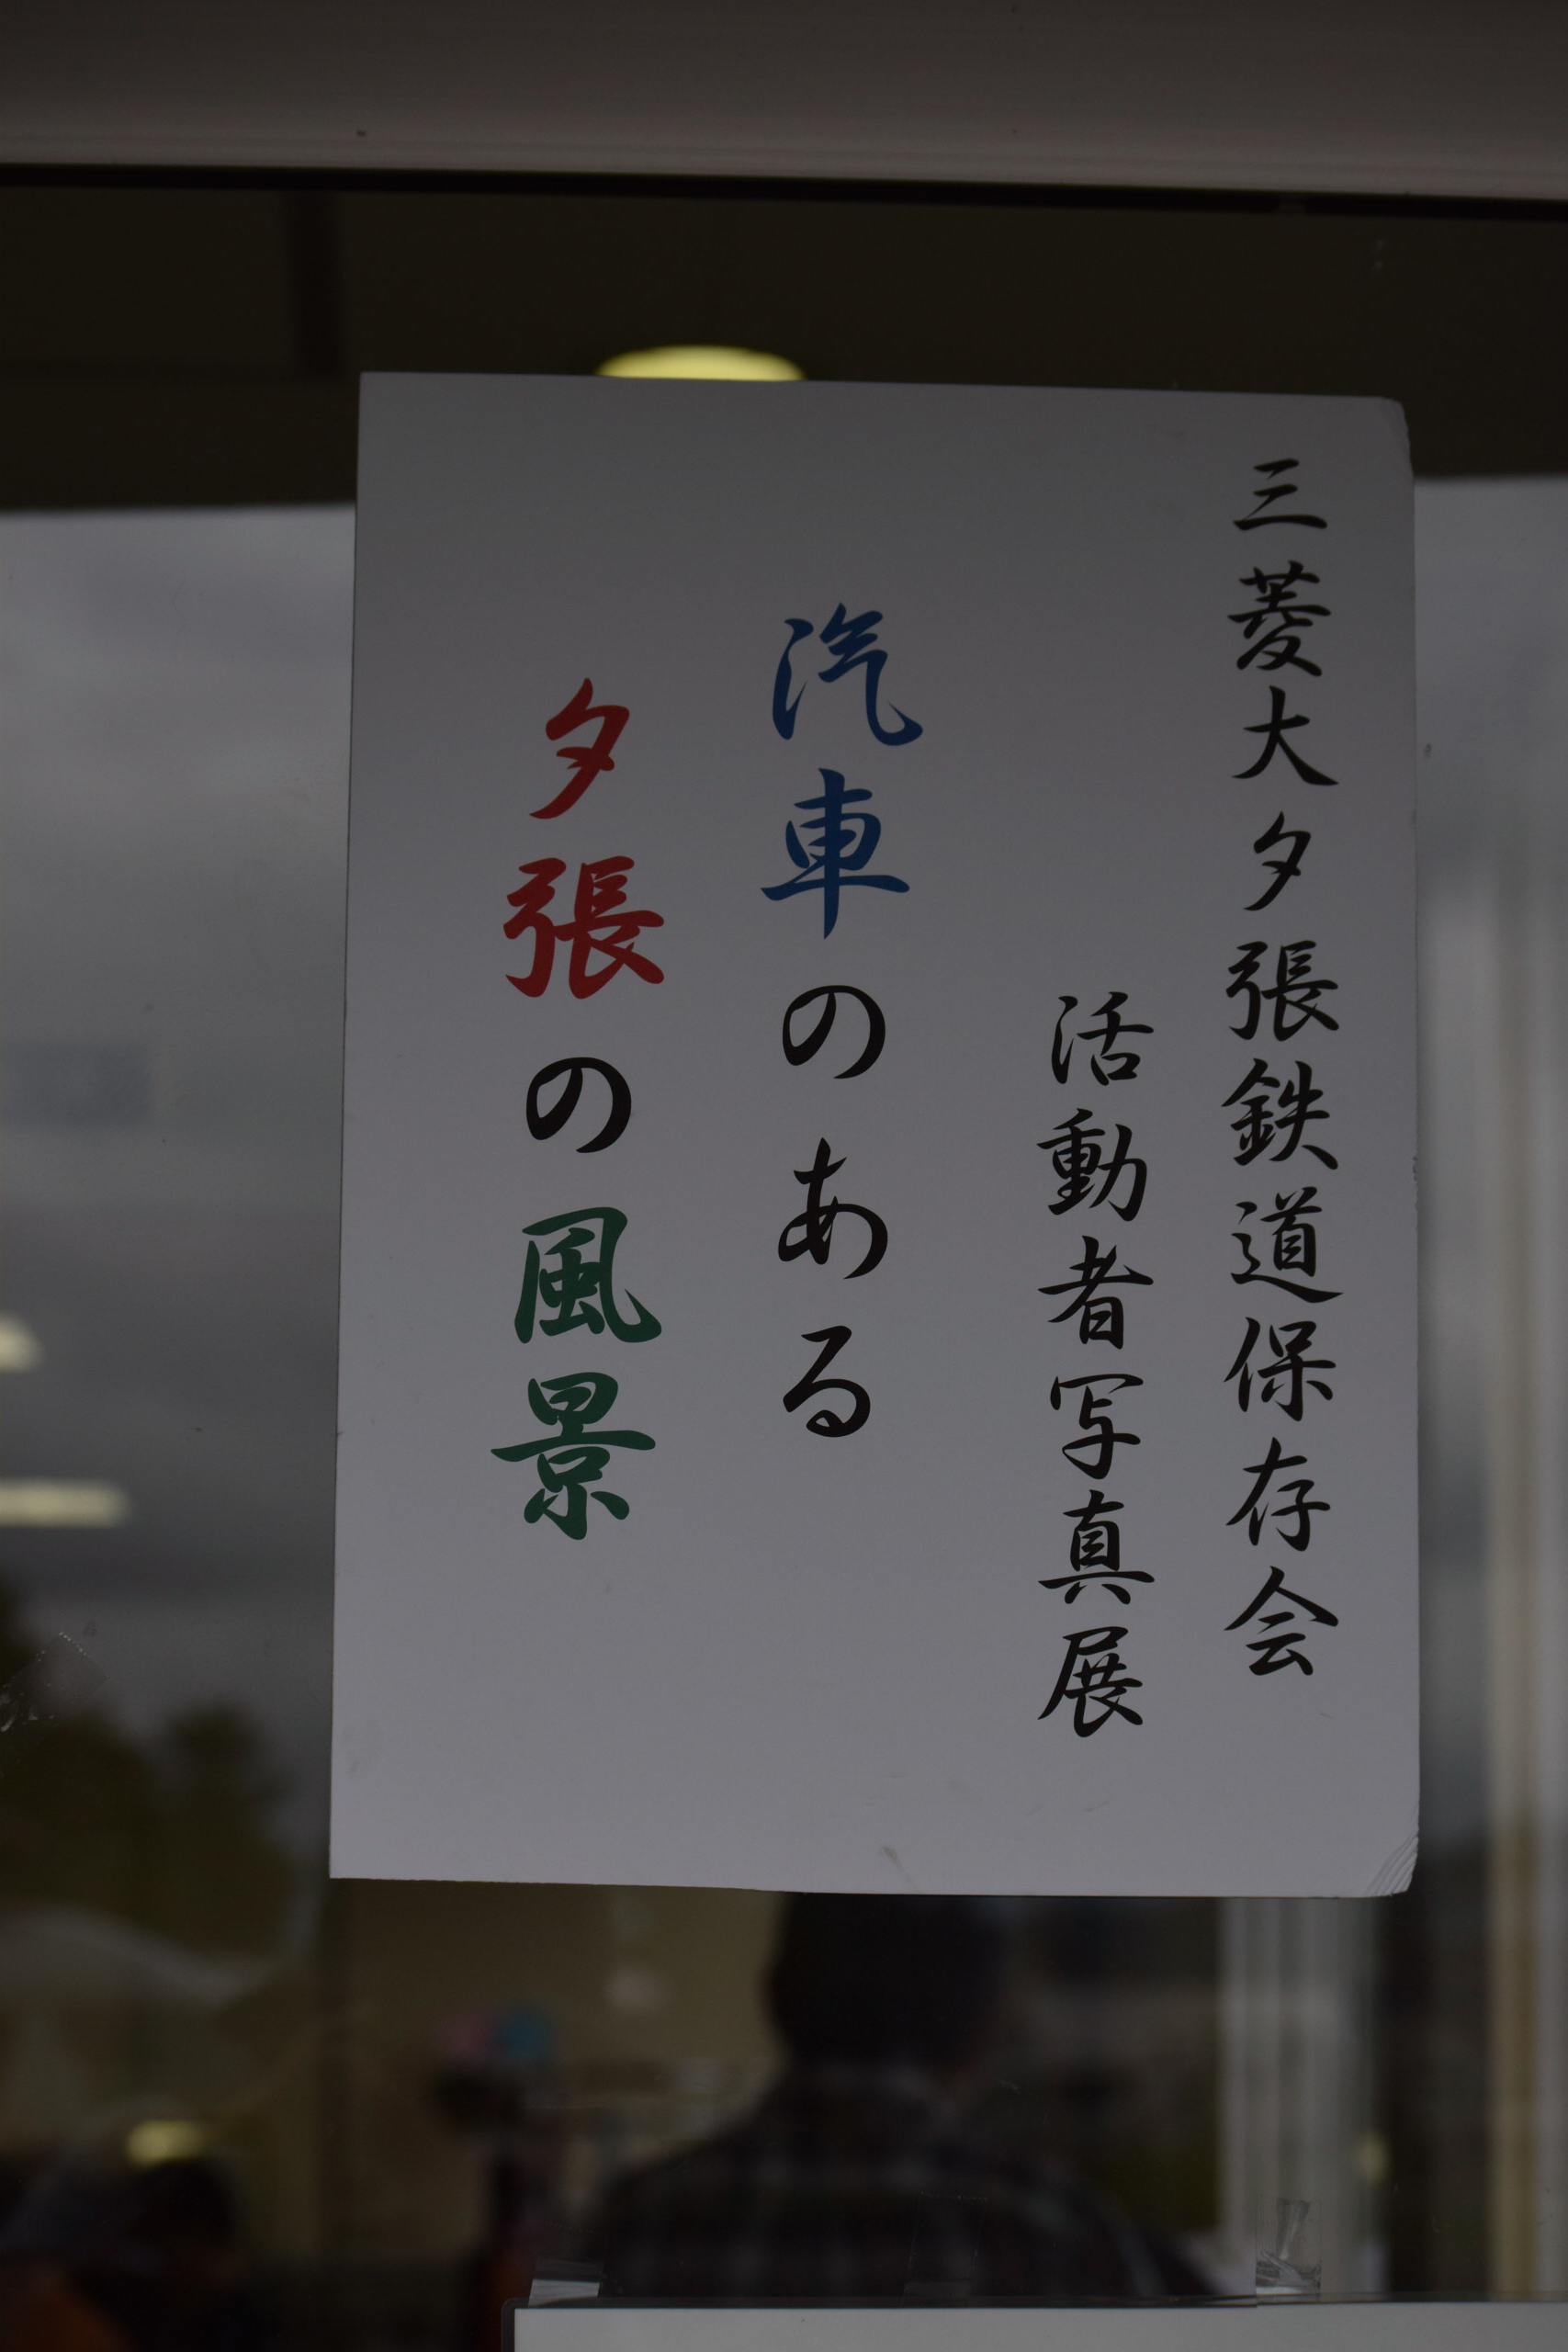 三菱大夕張鉄道保存会
活動者写真展
汽車のある
夕張の風景